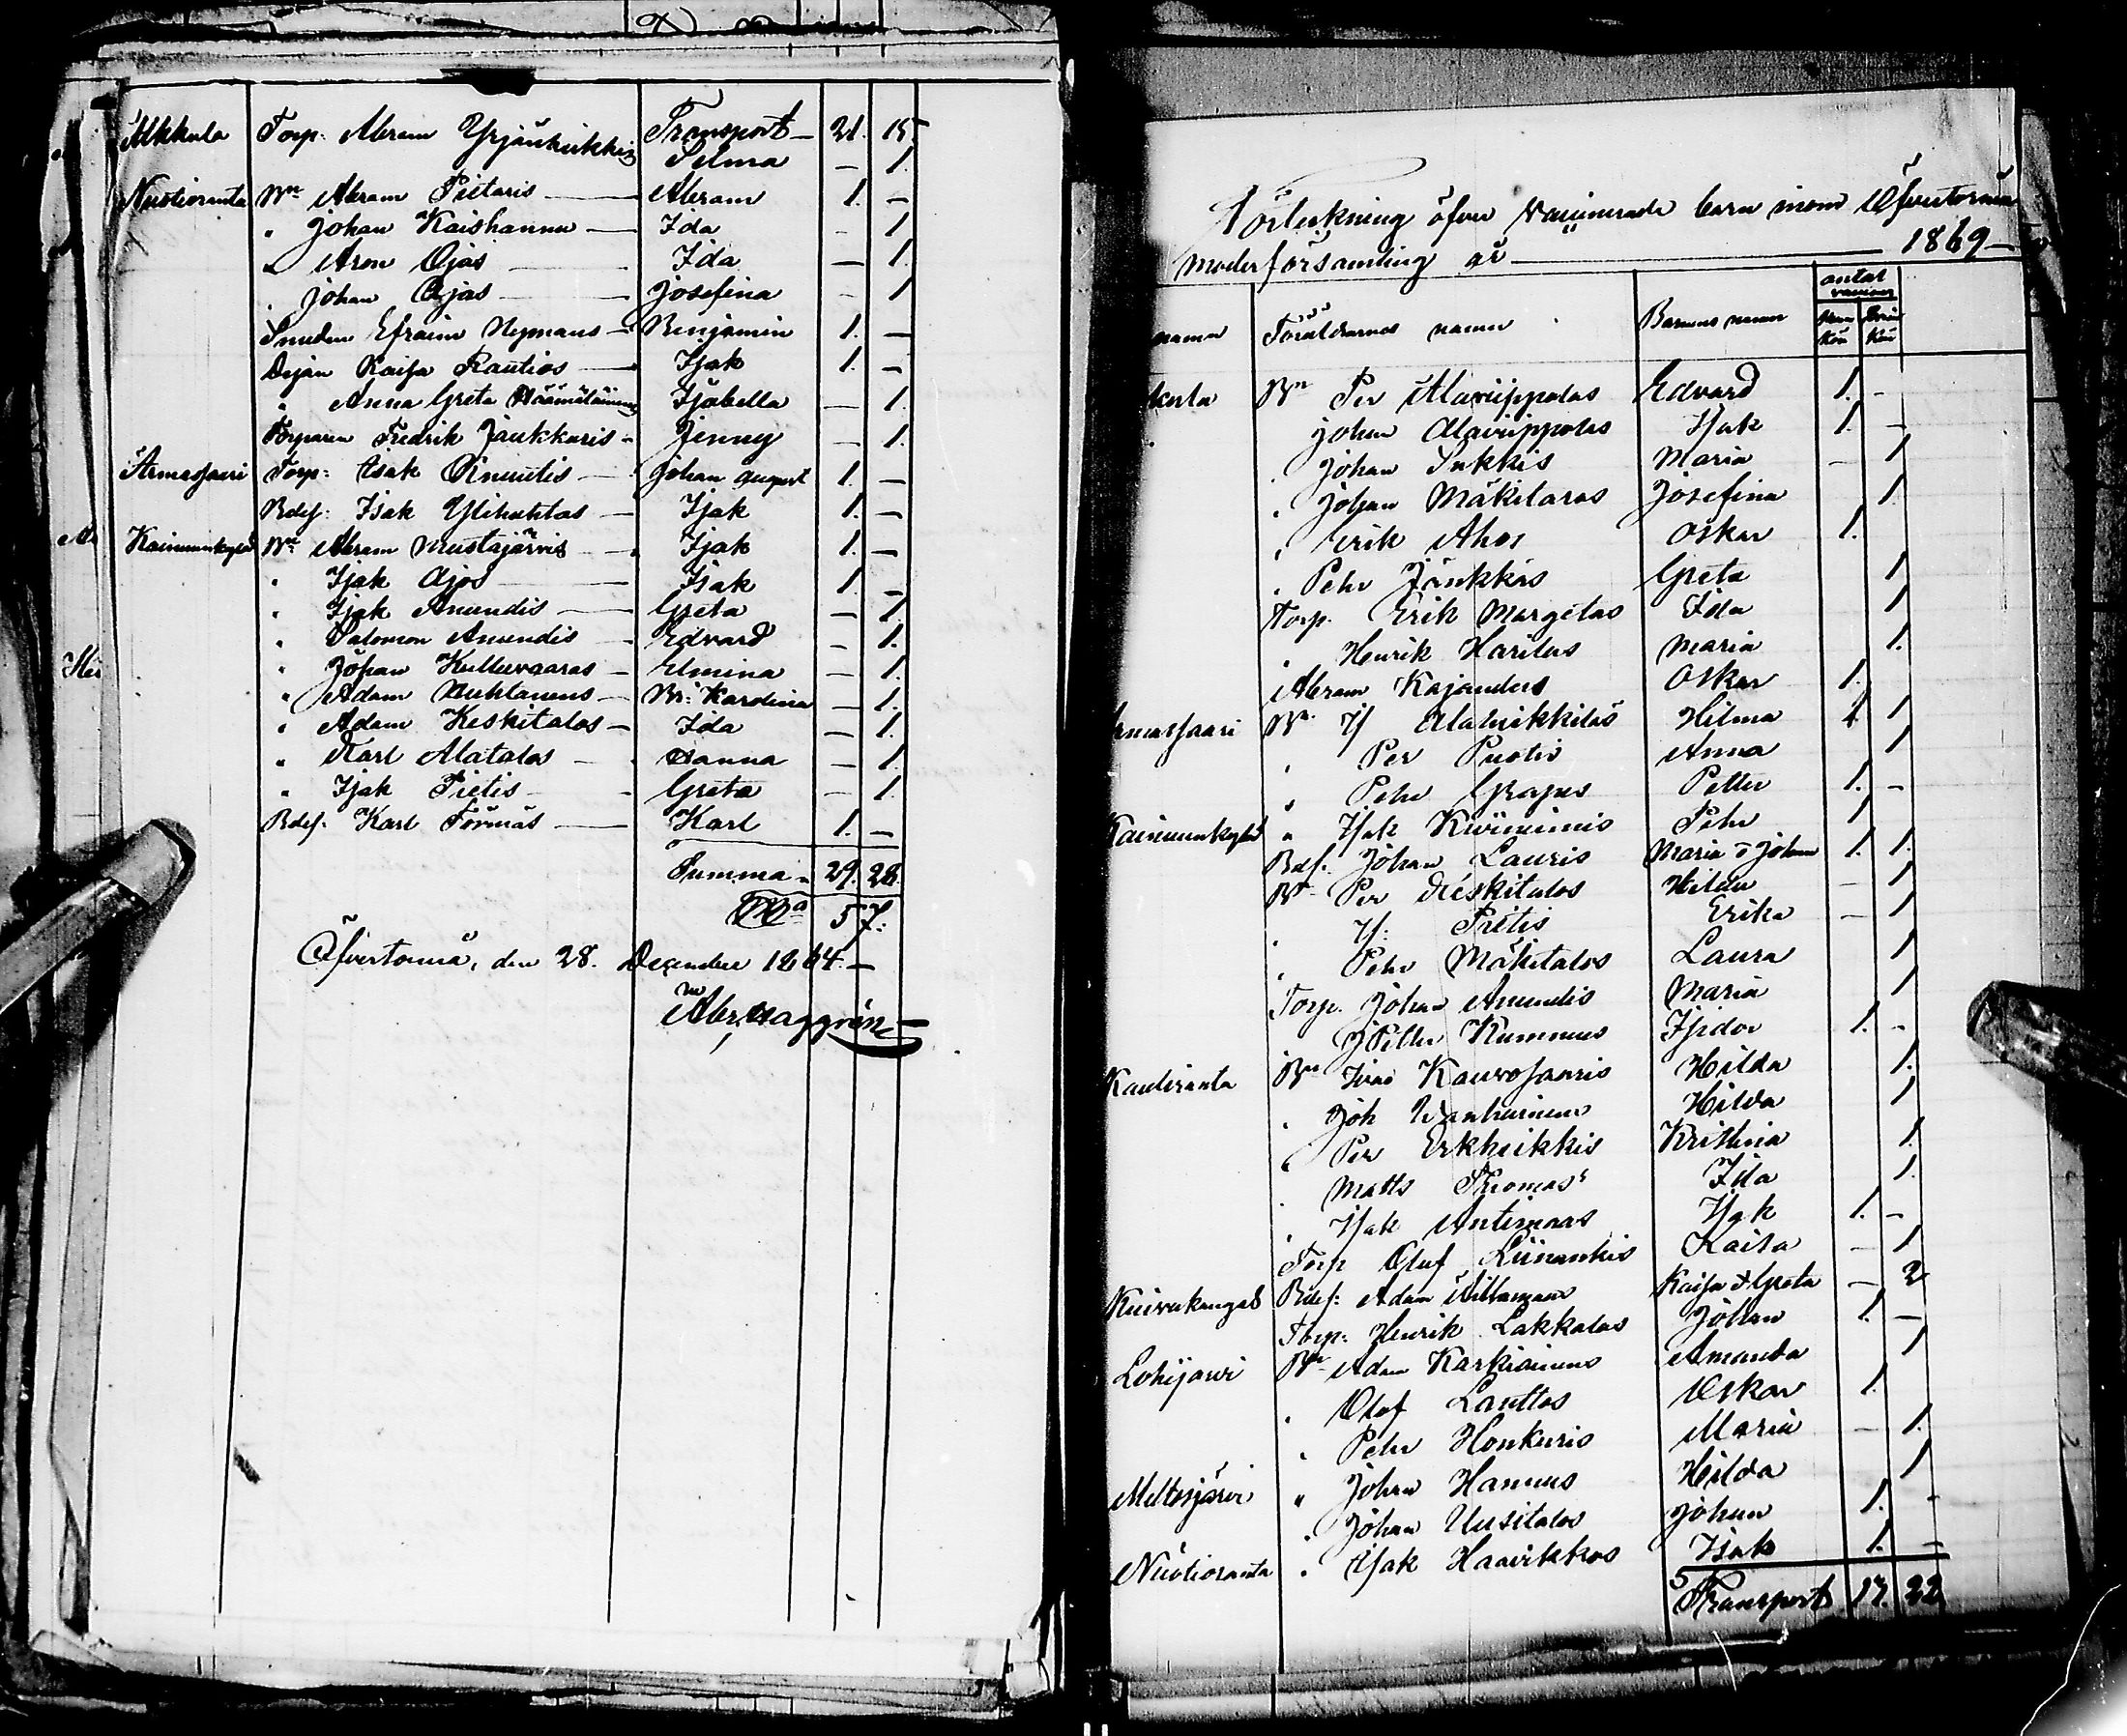 Alkkula Torp. Abram Yrjänheikkis Transport 21. 15.
Selma — 1.
Nuotioranta Bn Abram Pietaris — Abram 1. —
" Johan Kaishannu — Ida — 1
" Aron Ojas — Ida — 1.
" Johan Ojas — Josefina — 1
Smeden Efraim Nymans — Benjamin 1. —
Dejan Kaisa Rautios — Isak 1. —
" Anna Greta Häämäläinens Isabella — 1.
Torparen Fredrik Jänkkäris — Jenny — 1.
Armassaari Torp: Isak Knuutis — Johan August 1. —
Rdef: Isak Ylihuhtas — Isak 1. —
Kainuunkylä Bn Abram Mustajärvis — Isak 1. —
" Isak Ajos — Isak 1 —
" Isak Anundis — Greta — 1.
" Salomon Anundis — Edvard — 1.
" Johan Kulluvaaras — Elmina — 1.
" Adam Huhtanens — Br: Karolina — 1.
" Adam Keskitalos — Ida — 1.
" Karl Alatalos — Sanna — 1.
" Isak Pietis — Greta — 1
Rdef. Karl Törmäs — Karl 1. —
Summa 29. 28.
57.
Öfvertorneå, den 28. December 1864. —
Abr. Haggrén
Förteckning öfver vaccinerade barn inom Öfvertorneå
moderförsamling år — 1869 —
namn Föräldrarnes namn Barnens namn antal vacciner
Man Kön Kön
kula Bn Per Alaviippolas Edvard 1. —
Johan Alaviippolas Isak 1. —
" Johan Sukkis Maria — 1
" Johan Mäkitalos Josefina 1.
" Erik Ahos Oskar 1.
" Pehr Jänkkäs Greta 1
Torp. Erik Margetas Ida 1
" Henrik Harilas Maria 1.
Abram Kajanders Oskar 1.
rmassaari Bn Is Alaheikkiläs Hilma 1
" Per Puotis Anna 1
" Pehr Grapes Petter 1. —
Kainuunkylä " Isak Kwiinimis Pehr 1
Rdef. Johan Lauris Maria o Johan 1. 1.
Bn Per Keskitalos Hilda — 1
" Is: Pietis Erika — 1
" Pehr Mäkitalos Laura 1
Torp. Johan Anundis Maria 1
" Petter Kummus Isidor 1. —
Kauliranta Bn Kauvosaaris Hilda 1.
" Joh Wanhainens Hilda 1
" Per Erkheikkis Kristina 1.
" Matts Thomas Ida 1.
" Isak Antinaas Isak 1. —
Torp Olof Liinankis Kaisa — 1
Kuivakangas Rdef: Adam Kaisa & Greta — 2
Torp: Henrik Lakkalas Johan 1. —
Lohijärvi Bn Adam Karkiainens Amanda 1
" Olof Lauttos Oskar 1.
" Pehr Honkuris Maria — 1.
Meltosjärvi " Johan Hannus Hilda 1
" Johan Uusitalos Johan 1. —
Nuotioranta " Isak Haavikkos Isak 1. —
Transport 17. 22